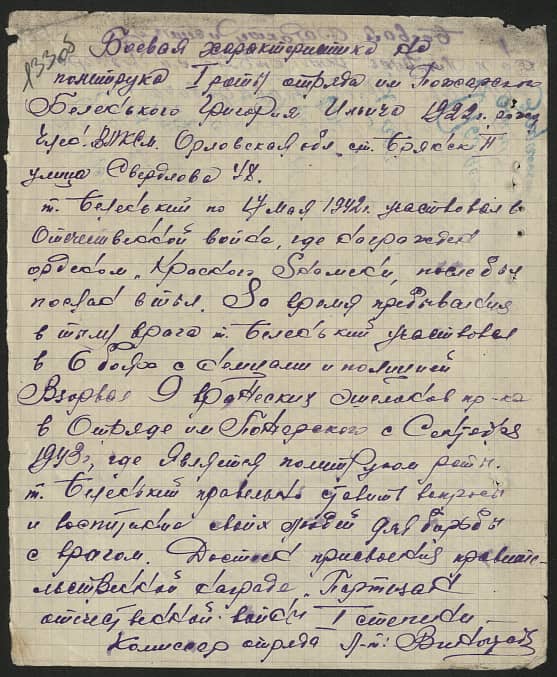 13305
Боевая характеристика на
политрука I роты отряда им Пожарского
Беленького Григория Ильича 1922 г. рожд
чл. ВЛКСМ. Орловская обл. ст. Брянск II
улица Свердлова 48.
т. Беленький по 17 мая 1942 г. участвовал в
Отечественной войне, где награжден
орденом, Красного Знамени, после был
послан в тыл. За время пребывания
в тылу врага т. Беленький участвовал
в 6 боях с немцами и полицией
Взорвал 9 вражеских эшелонов пр-ка
в Отряде им Пожарского с Сентября
1943 г, где является политруком роты.
т. Беленький правельно ставит вопросы
и воспитание своих людей для борьбы
с врагом. Достоен присвоения правите-
льственной награде, Партизан
отечественной войны I степени
Комиссар отряда Л-т: